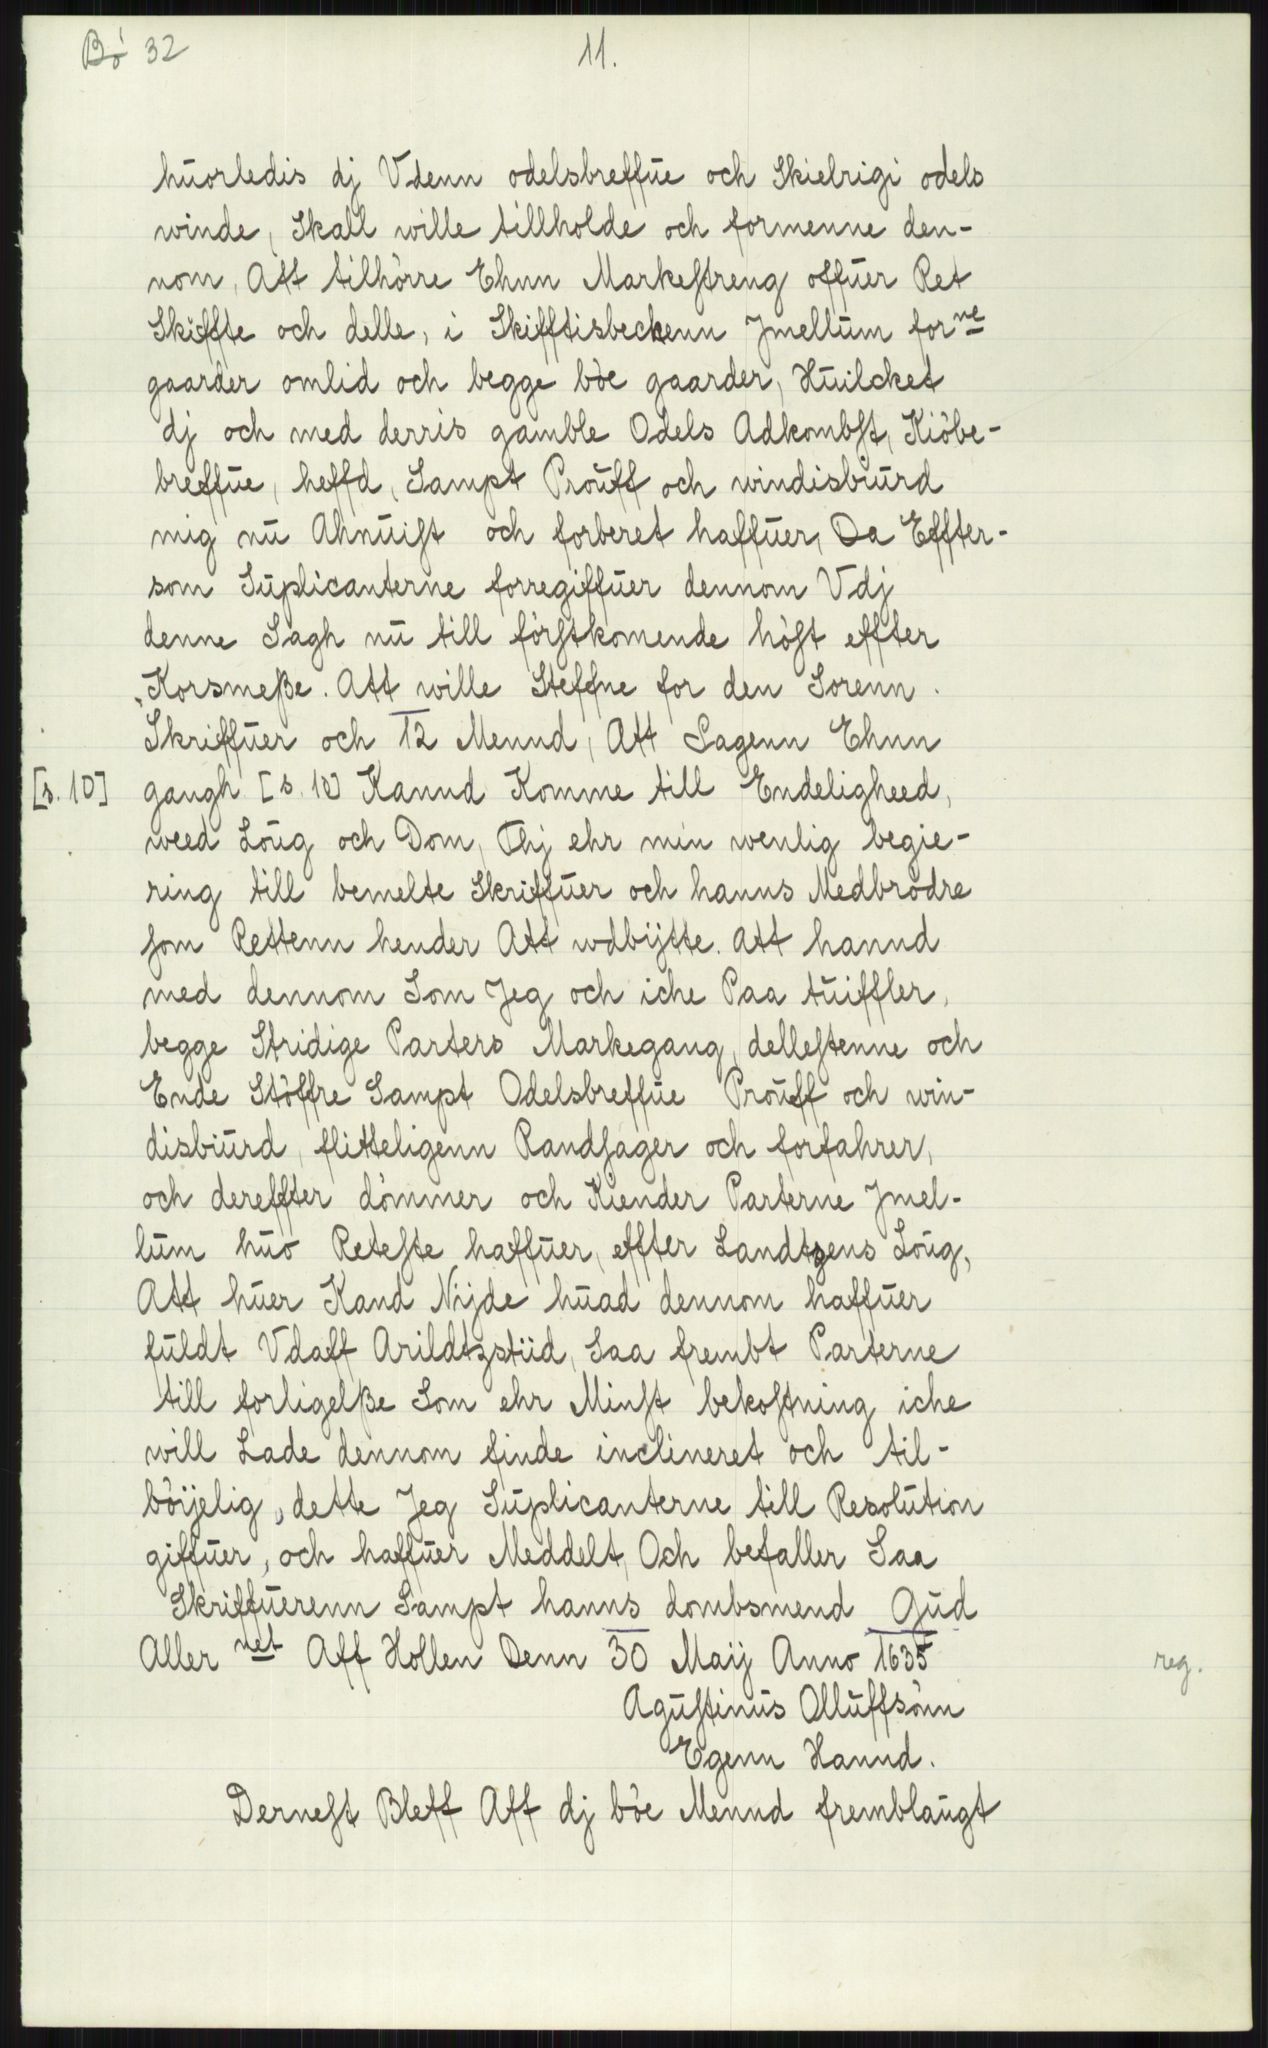 Bö 32
11.
huorledis dj Vdenn odelsbreffue och Skielrigi odels
winde, Skall wille tillholde och formenne den-
nom, Att tilhörre Ehnn Markestreng offuer Ret
Skiffte och delle, i Skifftisbeckenn Jmellum forne
gaarder omlid och begge böe gaarder, Huilcket
dj och med derris gamble Odels Adkombst, Kiöbe-
breffue, heffd, Sampt Prouff och windisbiurd
mig nu Ahnuist och forberet haffuer, Da Effter-
som Suplicanterne forregiffuer dennom Vdj
denne Sagh nu till förstkomende höst effter
Korsmeße. Att wille Steffne for den Sorenn
Skriffuer och 12 Mennd, Att Sagenn Ehnn
[s. 10] gangh [s. 10] Kannd Komme till Endeligheed,
weed Loug och Dom, Thj ehr min wenlig begie-
ring till bemelte Skriffuer och hanns Medbrödre
som Rettenn hender Att wdbijtte. att hannd
med dennom Som Jeg och iche Paa tuiffler,
begge Stridige Parters Markegang, dellestenne och
Ende Stöffre Sampt Odelsbreffue Prouff och win-
disbiurd, flitteligenn Randsager och forfahrer,
och dereffter dömmer och Kiender Parterne Jmel-
lum huo Reteste haffuer, effter Landtzens Loug,
Att huer Kand Nijde huad dennom haffuer
fuldt Vdaff Arildtzstiid, Saa frembt Parterne
till forligelße Som ehr Minst bekostning iche
will Lade dennom finde inclineret och til-
böijelig, dette Jeg Suplicanterne till Resolution
giffuer, och haffuer Meddelt, Och befaller Saa
Skriffuerenn Sampt hanns dombsmend Gud
Aller net Aff Hollen Denn 30 Maij Anno 1635
reg.
Agustinus Olluffsönn
Egenn Hannd.
Dernest Bleff Aff dj böe Mennd fremblaugt